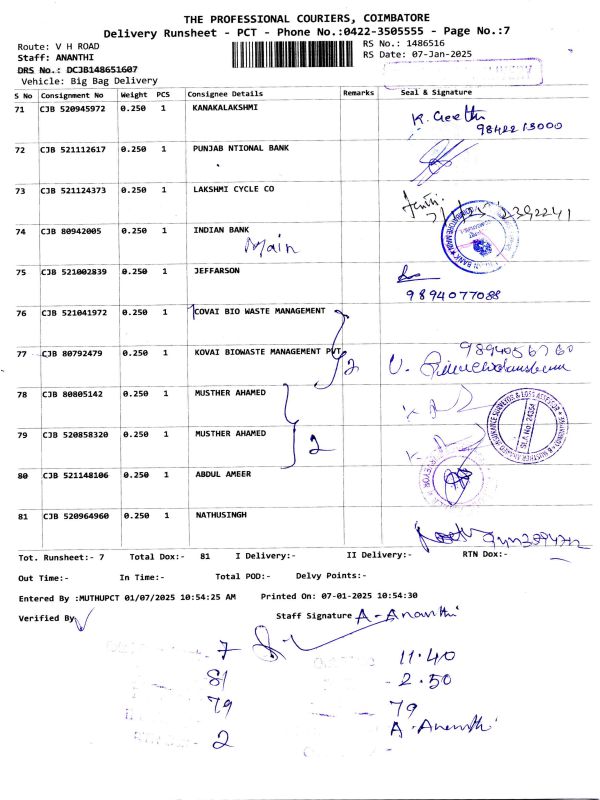 THE PROFESSIONAL COURIERS, COIMBATORE
Delivery Runsheet - PCT - Phone No.:0422-3505555 - Page No.:7
Route: V H ROAD
RS No.: 1486516
Staff: ANANTHI
RS Date: 07-Jan-2025
DRS No.: DCJB148651607
Vehicle: Big Bag Delivery
S No Consignment No Weight PCS Consignee Details Remarks Seal & Signature
71 CJB 520945972 0.250 1 KANAKALAKSHMI
K. Geetha
9842213000
72 CJB 521112617 0.250 1 PUNJAB NTIONAL BANK
73 CJB 521124373 0.250 1 LAKSHMI CYCLE CO
74 CJB 80942005 0.250 1 INDIAN BANK
Main
75 CJB 521002839 0.250 1 JEFFARSON
9894077088
76 CJB 521041972 0.250 1 COVAI BIO WASTE MANAGEMENT
77 CJB 80792479 0.250 1 KOVAI BIOWASTE MANAGEMENT PVT
2
78 CJB 80805142 0.250 1 MUSTHER AHAMED
79 CJB 520858320 0.250 1 MUSTHER AHAMED
2
80 CJB 521148106 0.250 1 ABDUL AMEER
81 CJB 520964960 0.250 1 NATHUSINGH
Tot. Runsheet:- 7 Total Dox:- 81 I Delivery:- II Delivery:- RTN Dox:-
Out Time:- In Time:- Total POD:- Delvy Points:-
Entered By :MUTHUPCT 01/07/2025 10:54:25 AM Printed On: 07-01-2025 10:54:30
Verified By
Staff Signature A-Ananthi
7 11.40
81 2.50
79 79
2 A-Ananthi